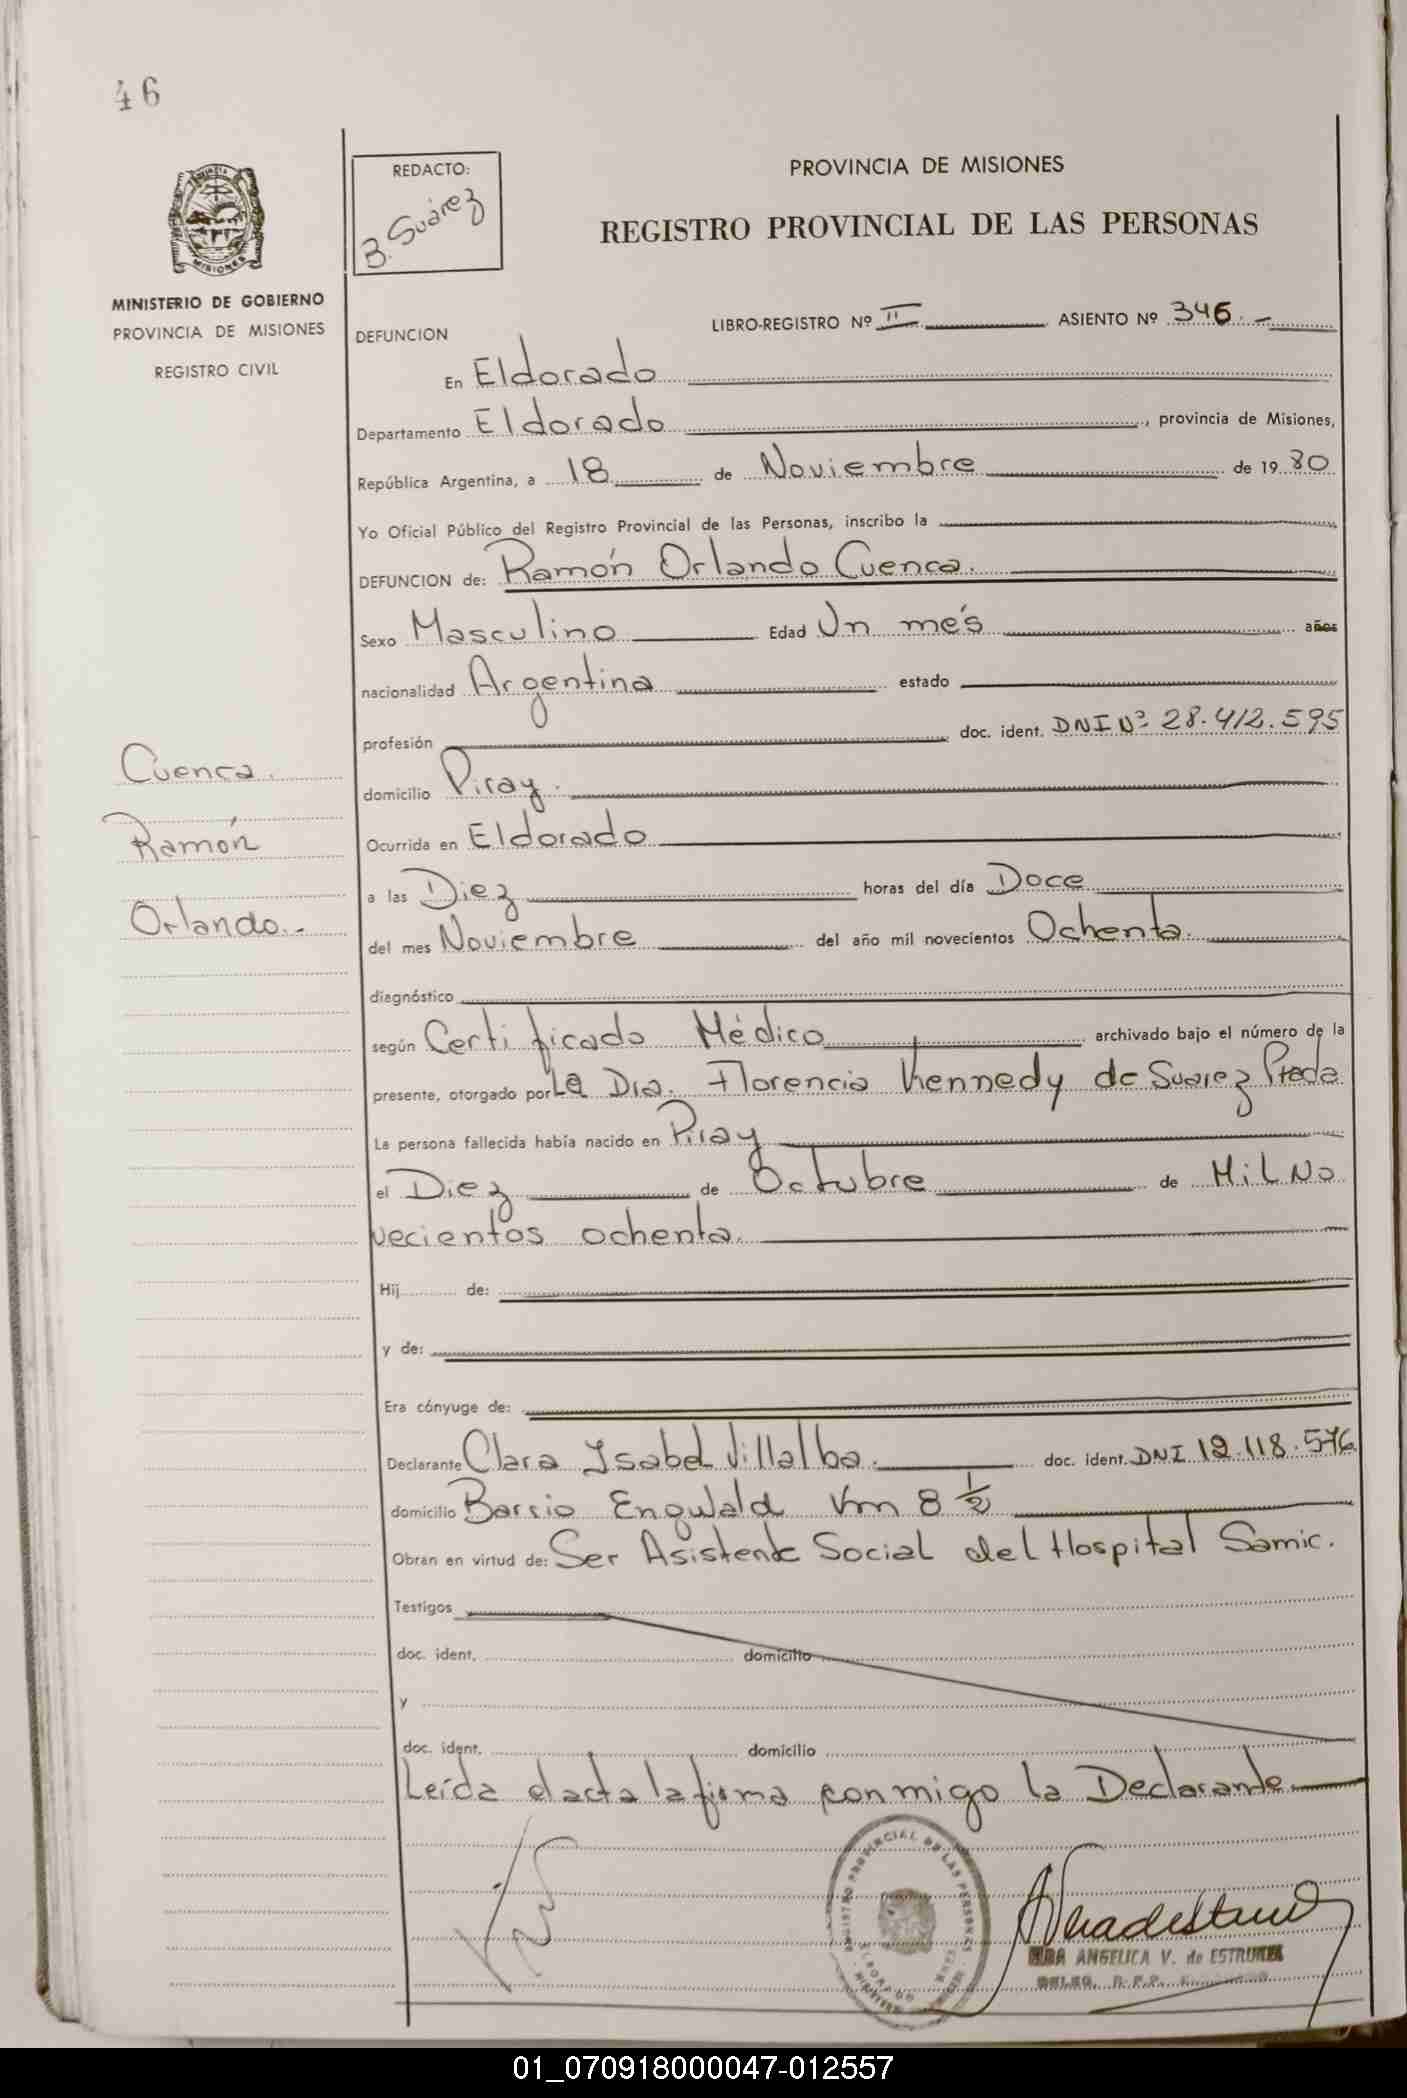 46
REDACTO:
B. Suárez
PROVINCIA DE MISIONES
REGISTRO PROVINCIAL DE LAS PERSONAS
MISIONES
MINISTERIO DE GOBIERNO
PROVINCIA DE MISIONES
REGISTRO CIVIL
DEFUNCION
LIBRO-REGISTRO Nº II ASIENTO Nº 346.-
En Eldorado
Departamento Eldorado, provincia de Misiones,
República Argentina, a 18 de Noviembre de 1980
Yo Oficial Público del Registro Provincial de las Personas, inscribo la
DEFUNCION de: Ramón Orlando Cuenca.
Sexo Masculino Edad Un més años
nacionalidad Argentina estado
profesión doc. ident. DNI Nº 28.412.595
Cuenca.
Ramón
Orlando.-
domicilio Piray.
Ocurrida en Eldorado
a las Diez horas del día Doce
del mes Noviembre del año mil novecientos Ochenta.
diagnóstico
según Certificado Médico archivado bajo el número de la
presente, otorgado por La Dra. Florencia Kennedy de Suarez
La persona fallecida había nacido en Piray
el Diez de Octubre de Mil No
vecientos ochenta.
Hij de:
y de:
Era cónyuge de:
Declarante Clara Isabel Villalba. doc. ident. DNI 12.118.576
domicilio Barrio Enguald Km 8 ½
Obran en virtud de: Ser Asistente Social del Hospital Samic.
Testigos
doc. ident. domicilio
y
doc. ident. domicilio
Leída el acta la firma conmigo la Declarante
REGISTRO PROVINCIAL DE LAS PERSONAS
ELDORADO
ANGELICA V. de ESTRUMIA
01_070918000047-012557